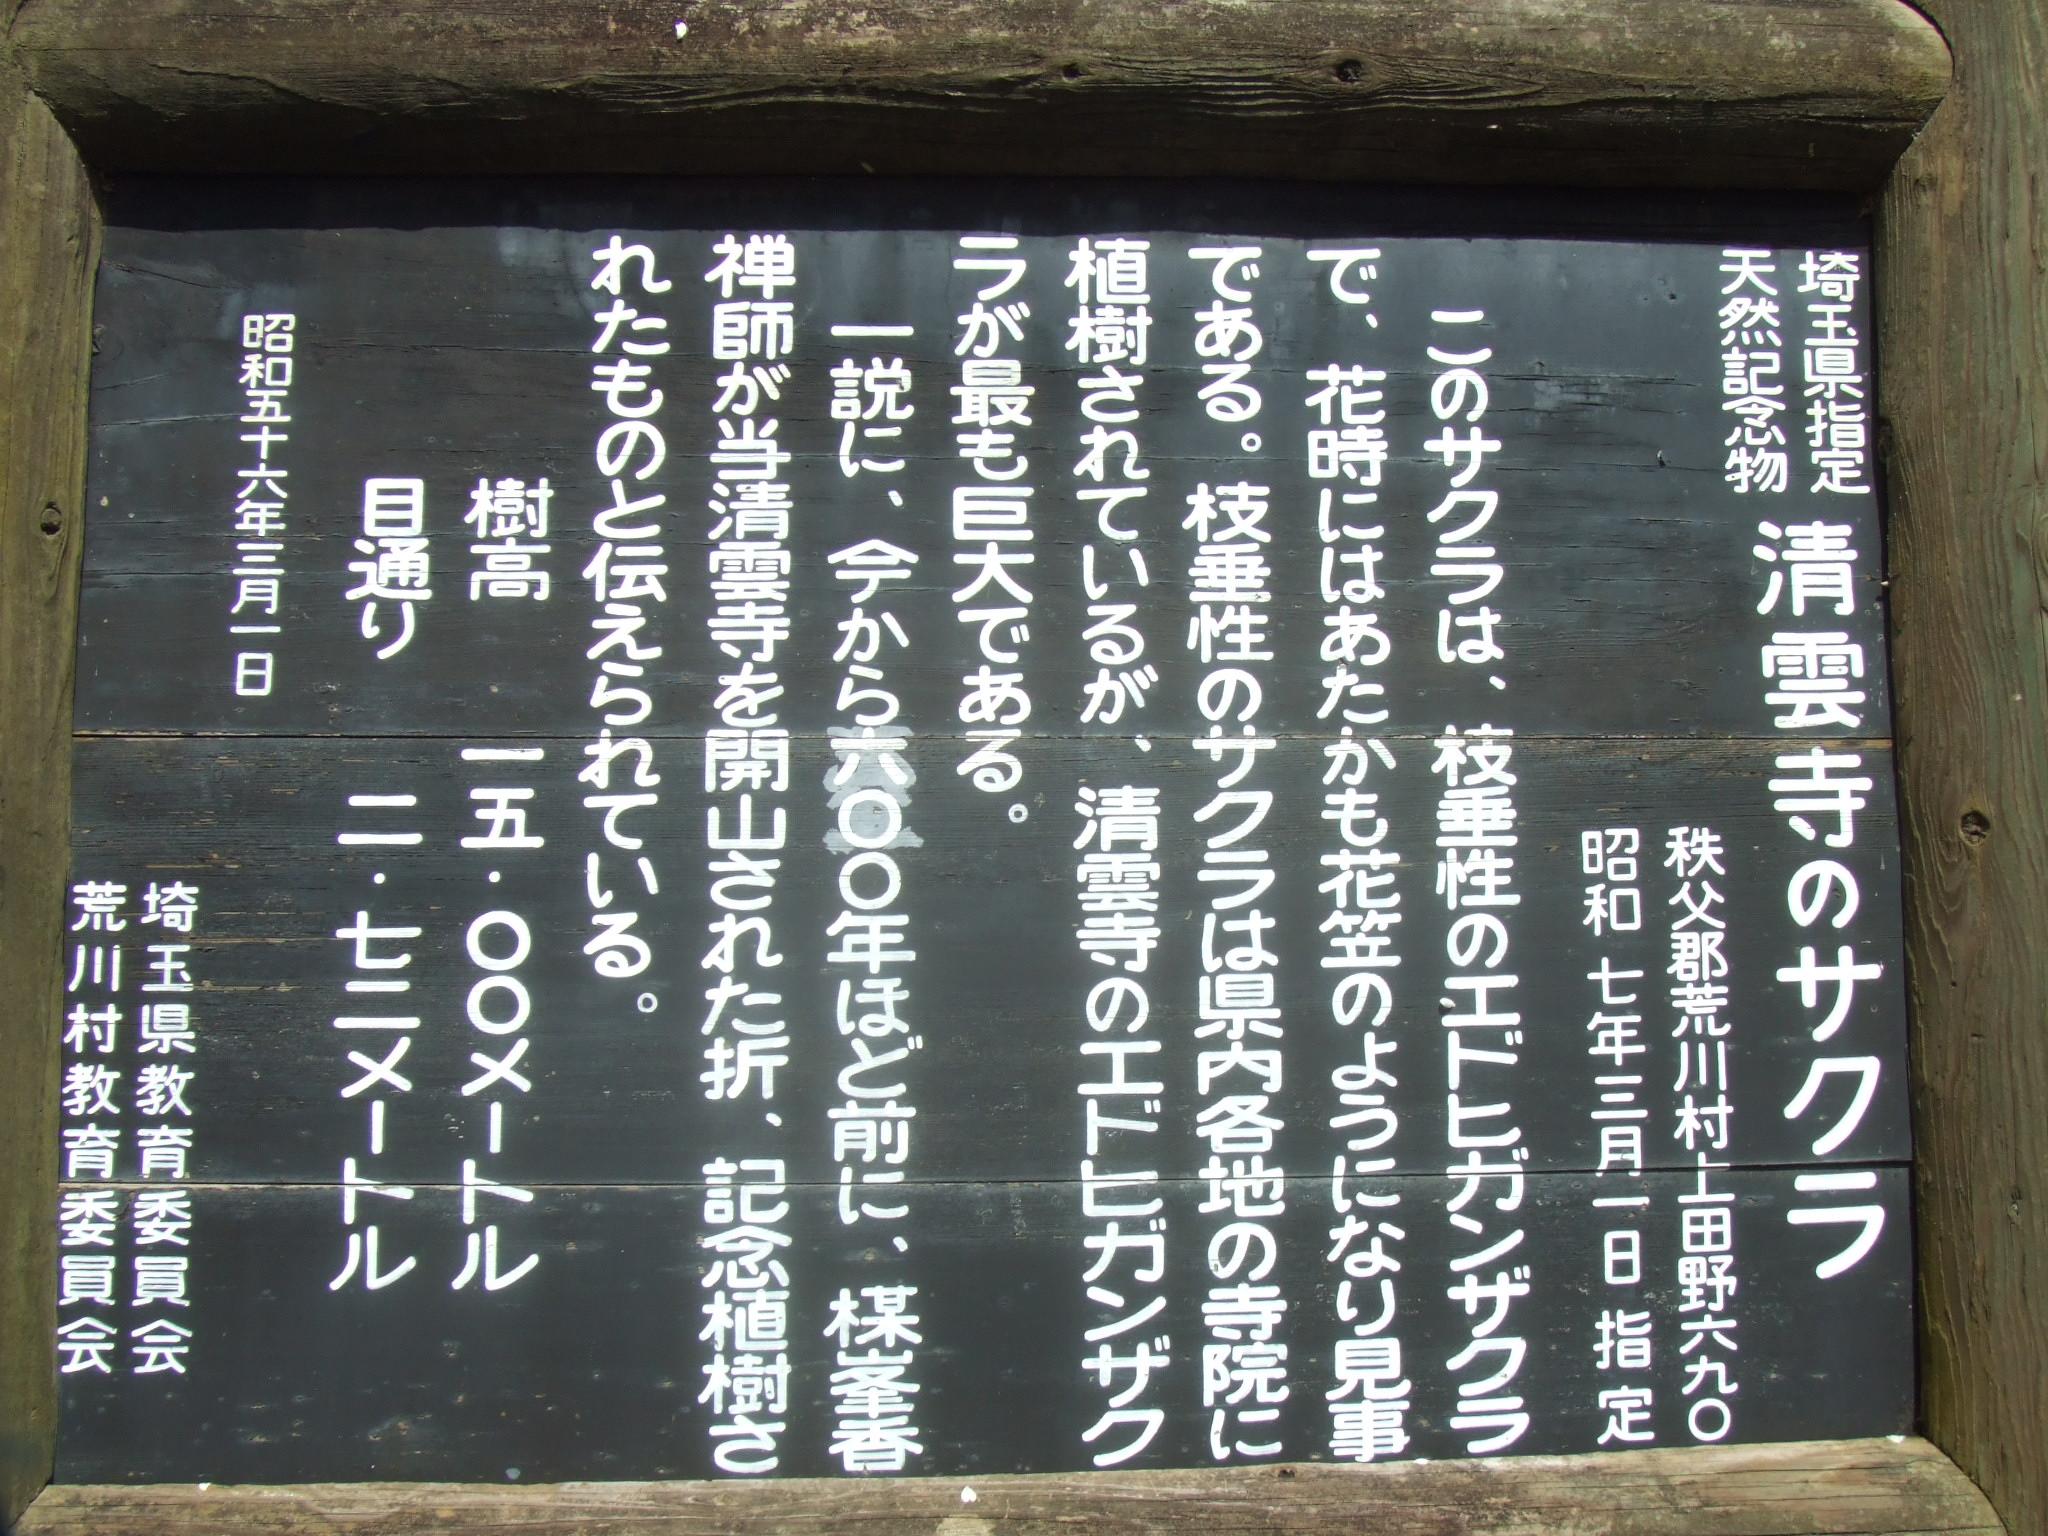 埼玉県指定
天然記念物
清雲寺のサクラ
秩父郡荒川村上田野六九〇
昭和七年三月一日指定
このサクラは、枝垂性のエドヒガンザクラ
で、花時にはあたかも花笠のようになり見事
である。枝垂性のサクラは県内各地の寺院に
植樹されているが、清雲寺のエドヒガンザク
ラが最も巨大である。
一説に、今から六〇〇年ほど前に、楳峯香
禅師が当清雲寺を開山された折、記念植樹さ
れたものと伝えられている。
樹高 一五・〇〇メートル
目通り 二・七二メートル
昭和五十六年三月一日
埼玉県教育委員会
荒川村教育委員会